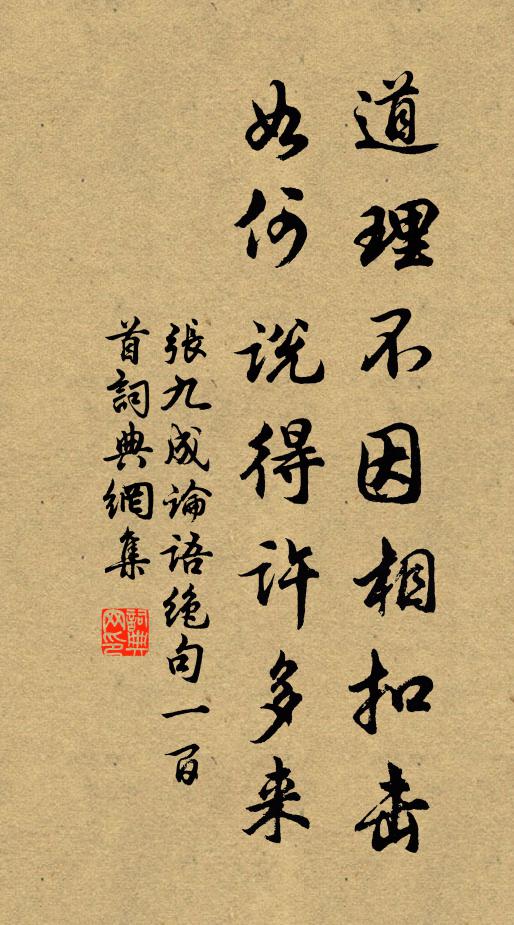 道理不因相扣击
如何说得许多来
張九成論語绝句一百
首詞典網集
詞典
网印